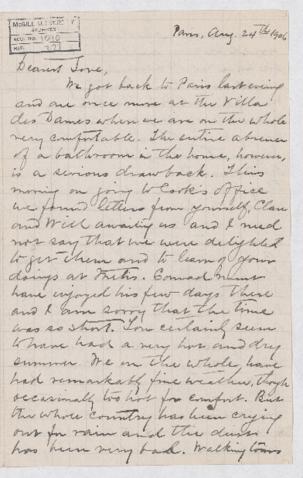 McGILL UNIVERSITY
ARCHIVES
ACC. NO.
REF.
Paris, Aug. 24th 1906
Dearest Tove,
We got back to Paris last evening
and are once more at the Villa
des Dames where we are on the whole
very comfortable. The entire absence
of a bathroom in the house, however,
is a serious drawback. This
morning on going to Cook's office
we found letters from yourself, Clare
and Will awaiting us and I need
not say that we were delighted
to get them and to learn of your
doings at Metis. Conrad must
have enjoyed his few days there
and I am sorry that the time
was so short. You certainly seem
to have had a very hot and dry
summer. We on the whole, have
had remarkably fine weather, though
occasionally too hot for comfort. But
the whole country has been crying
out for rain and the dust
has been very bad. Walking tours